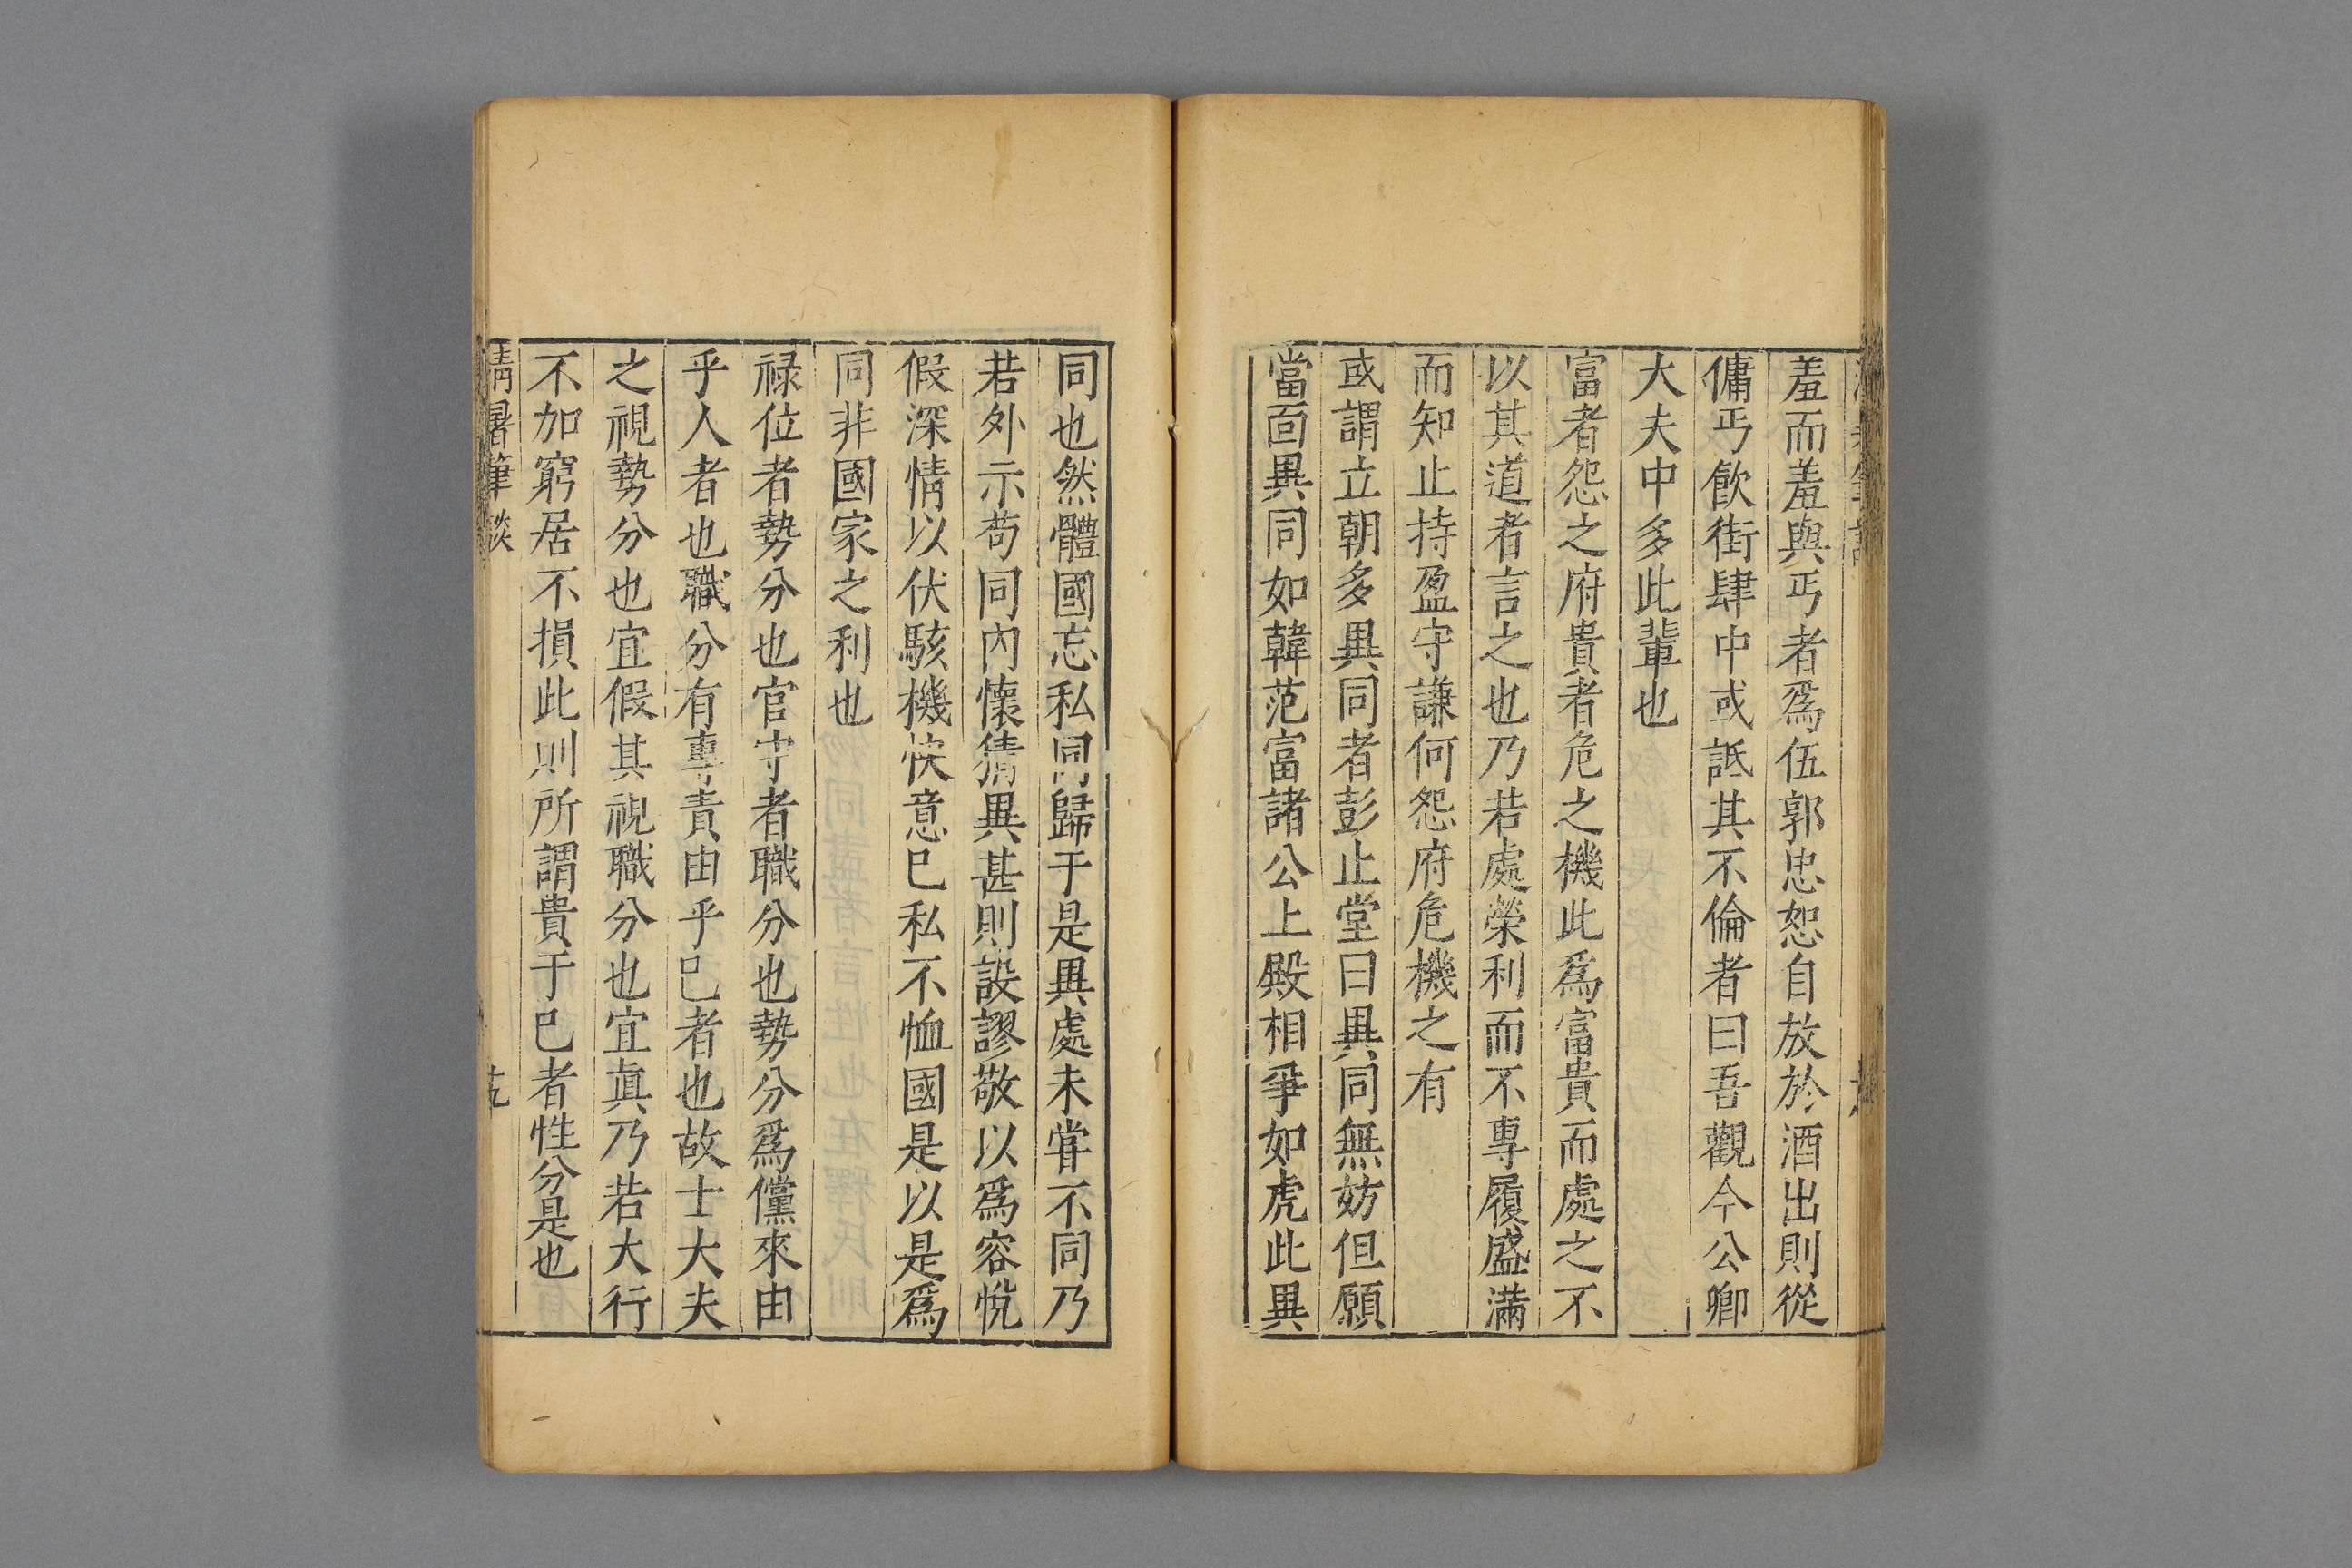 羞而羞與丐者爲伍郭忠恕自放於酒出則從
傭丐飲街肆中或詆其不倫者曰吾觀今公卿
大夫中多此輩也
富者怨之府貴者危之機此爲富貴而處之不
以其道者言之也乃若處榮利而不專履盛滿
而知止持盈守謙何怨府危機之有
或謂立朝多異同者彭止堂曰異同無妨但願
當面異同如韓范富諸公上殿相爭如虎此異
同也然體國忘私同歸于是異處未甞不同乃
若外示苟同內懷猜異甚則設謬敬以爲容悅
假深情以伏駭機快意已私不恤國是以是爲
同非國家之利也
禄位者勢分也官守者職分也勢分爲儻來由
乎人者也職分有專責由乎已者也故士大夫
之視勢分也宜假其視職分也宜眞乃若大行
不加窮居不損此則所謂貴于已者性分是也
清暑筆談